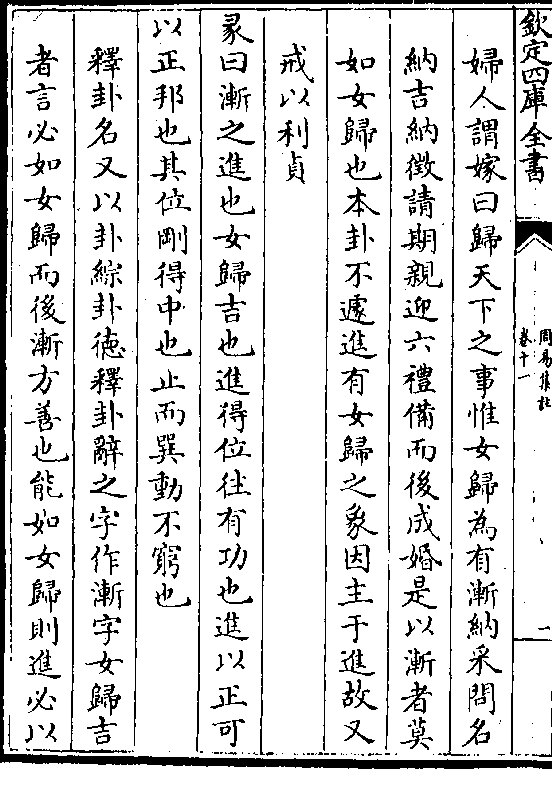 欽定四庫全書
周易集註
卷十一
一
婦人謂嫁曰歸天下之事惟女歸為有漸納采問名
納吉納徵請期親迎六禮備而後成婚是以漸者莫
如女歸也本卦不遽進有女歸之象因主于進故又
戒以利貞
彖曰漸之進也女歸吉也進得位往有功也進以正可
以正邦也其位剛得中也止而巽動不窮也
釋卦名又以卦綜卦德釋卦辭之字作漸字女歸吉
者言必如女歸而後漸方善也能如女歸則進必以